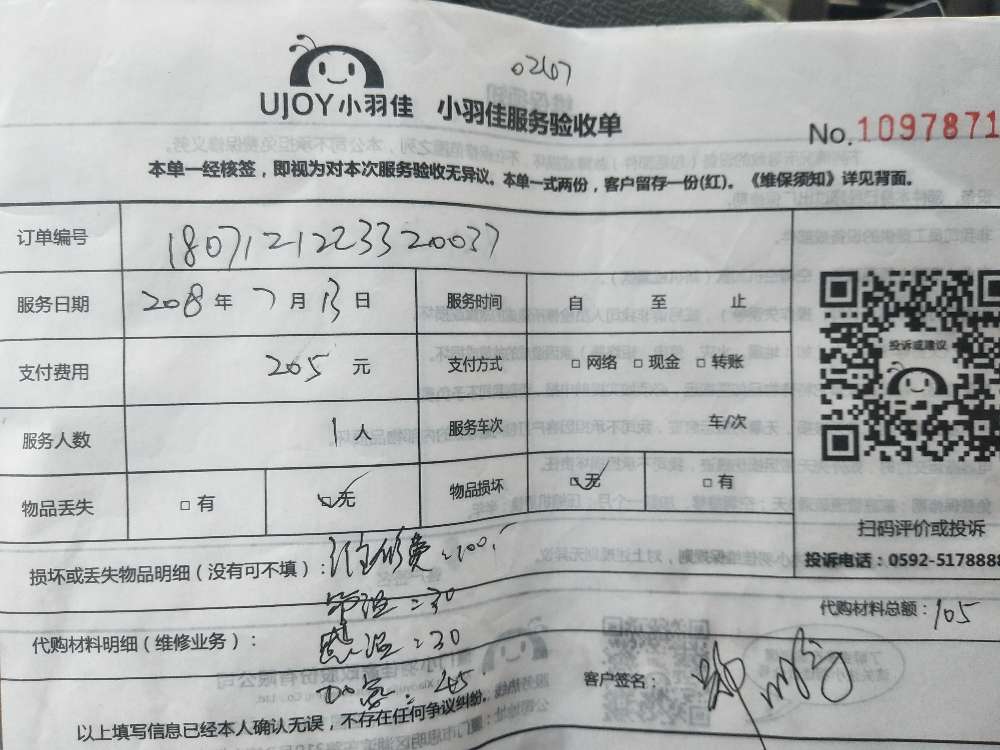 0267
UJOY小羽佳 小羽佳服务验收单
No. 1097871
本单一经核签，即视为对本次服务验收无异议。本单一式两份，客户留存一份(红)。《维保须知》详见背面。
订单编号 18071212233320037
服务日期 2018年7月13日 服务时间 自 至 止
支付费用 205 元 支付方式 □网络 □现金 □转账
投诉或建议
服务人数 1人 服务车次 车/次
物品丢失 □有 □无 物品损坏 □无 □有
扫码评价或投诉
投诉电话：0592-5178888
损坏或丢失物品明细（没有可不填）： 维修费：100
代购材料总额：105
管温：30
代购材料明细（维修业务）： 感温：30
客户签名：
加氟：45
以上填写信息已经本人确认无误，不存在任何争议纠纷。